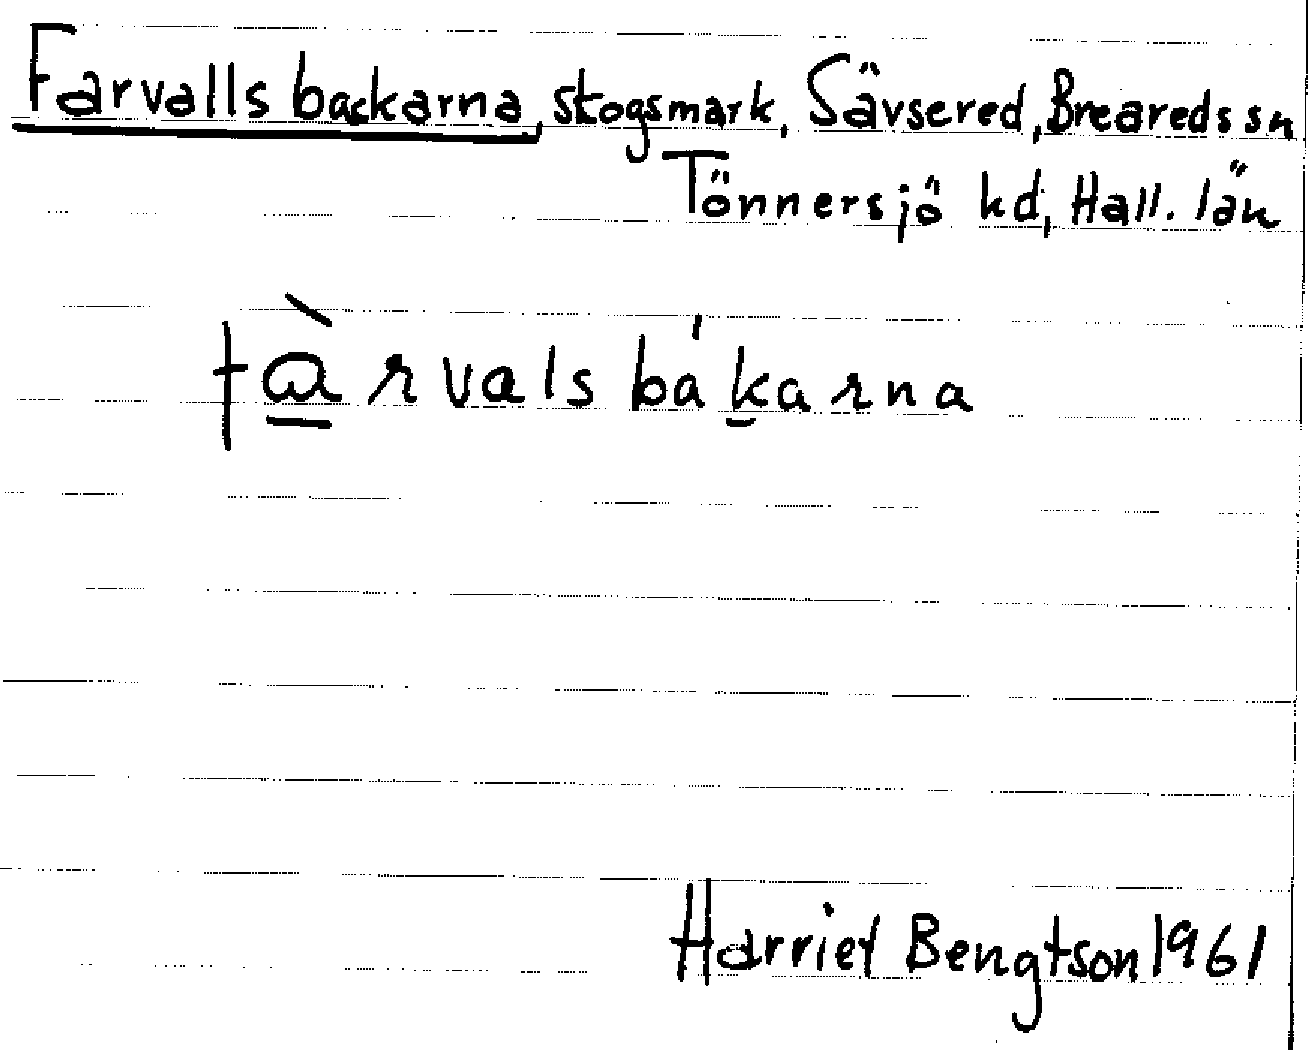 Farvalls backarna, skogsmark, Sävsered, Breareds sn
Tönnersjö hd, Hall. län
fàrvalsbákarna
Harriet Bengtson 1961